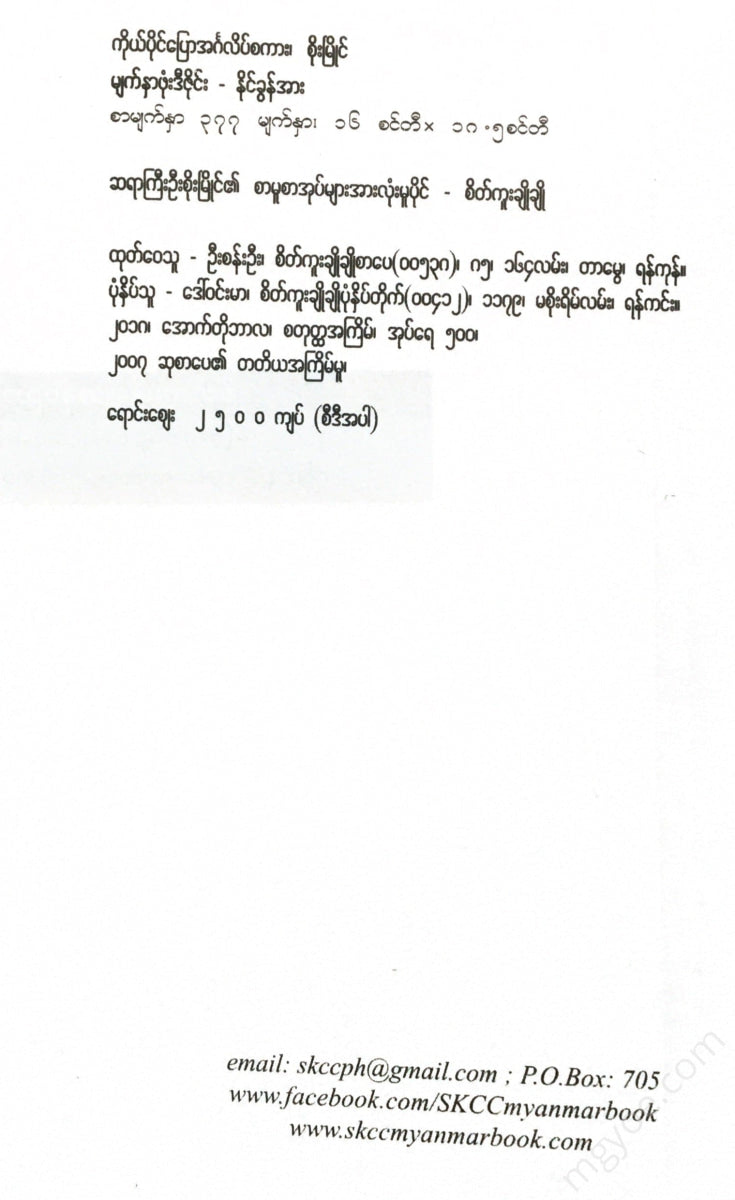 ကိုယ်ပိုင်ပြောအင်္ဂလိပ်စကား၊ စိုးမြိုင်
မျက်နှာဖုံးဒီဇိုင်း - နိုင်ခွန်အား
စာမျက်နှာ ၃၇၇ မျက်နှာ၊ ၁၆ စင်တီ× ၁၈.၅စင်တီ
ဆရာကြီးဦးစိုးမြိုင်၏ စာမူစာအုပ်များအားလုံးမူပိုင် - စိတ်ကူးချိုချို
ထုတ်ဝေသူ - ဦးစန်းဦး၊ စိတ်ကူးချိုချိုစာပေ(၀၀၅၃၈)၊ ဂ၅၊ ၁၆၄လမ်း၊ တာမွေ၊ ရန်ကုန်။
ပုံနှိပ်သူ - ဒေါ်ဝင်းမာ၊ စိတ်ကူးချိုချိုပုံနှိပ်တိုက်(၀၀၄၁၂)၊ ၁၁၇၉၊ မစိုးရိမ်လမ်း၊ ရန်ကင်း။
၂၀၁၈၊ အောက်တိုဘာလ၊ စတုတ္ထအကြိမ်၊ အုပ်ရေ ၅၀၀၊
၂၀၀၇ ဆုစာပေ၏ တတိယအကြိမ်မူ၊
ရောင်းဈေး ၂ ၅ ၀ ၀ ကျပ် (စီဒီအပါ)
email: skccph@gmail.com ; P.O.Box: 705
www.facebook.com/SKCCmyanmarbook
www.skccmyanmarbook.com
mgyoe.com